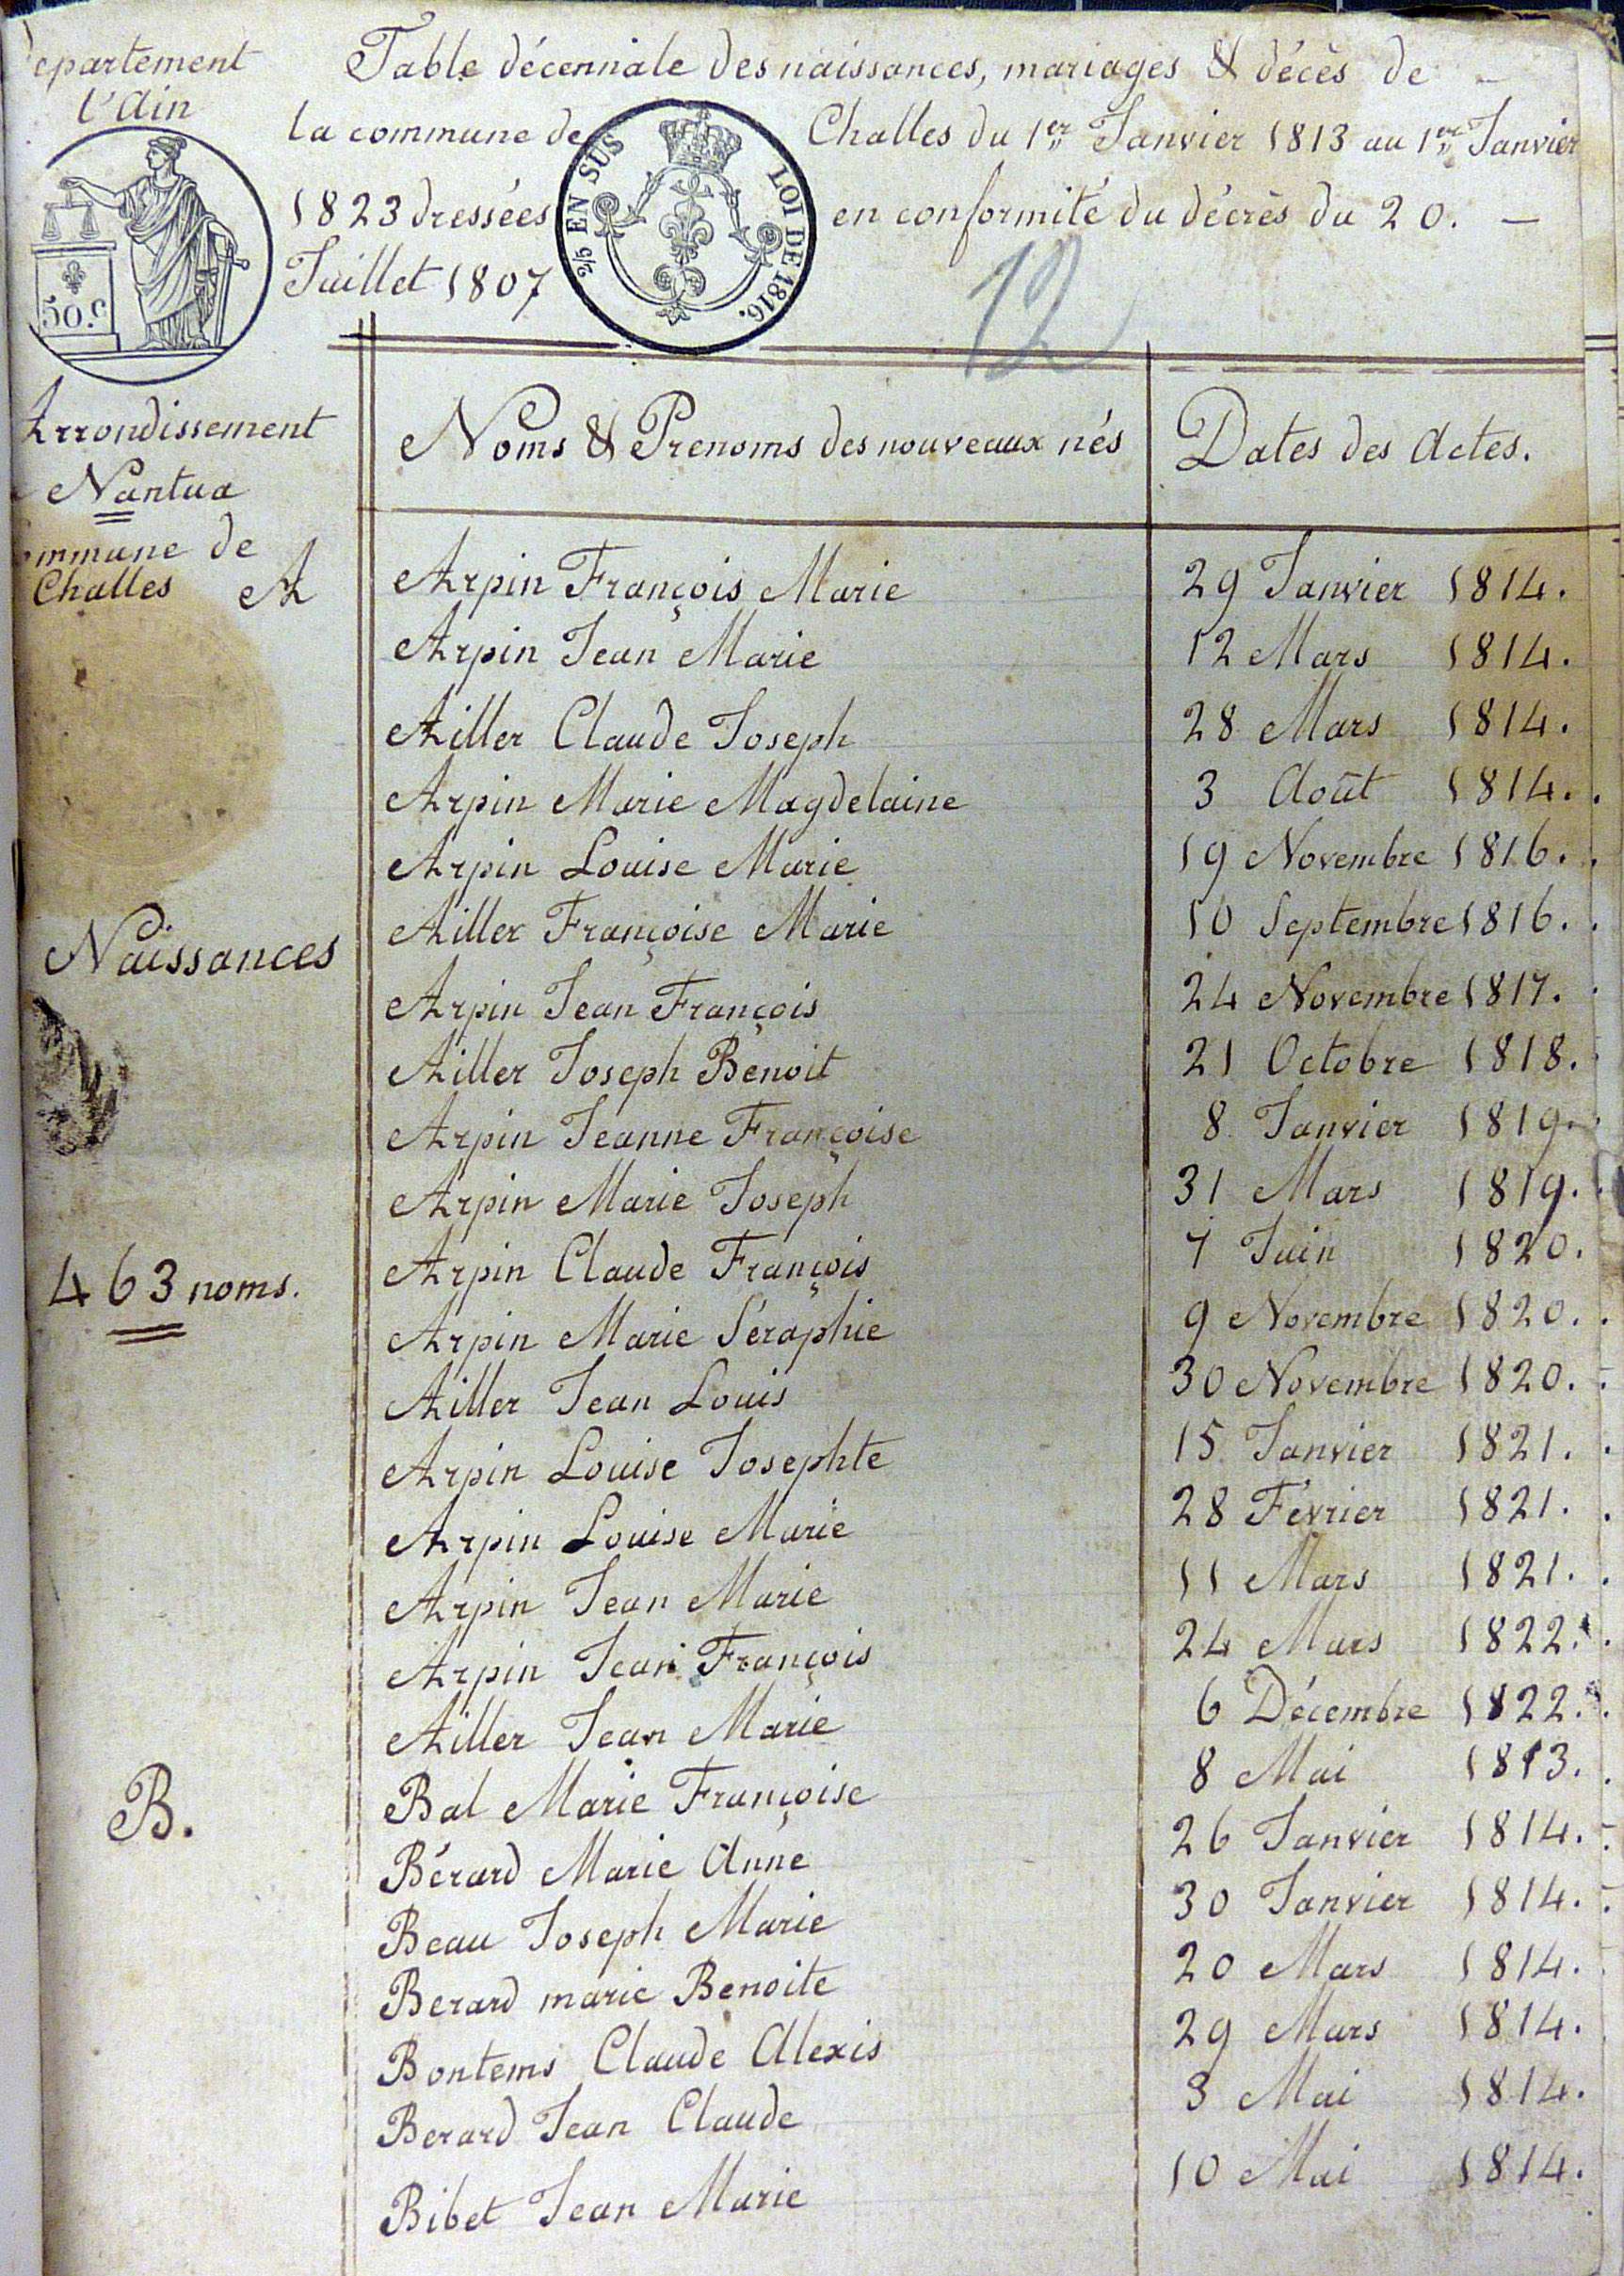 epartement
l'Ain
Table décennale des naissances, mariages & décès de —
la commune de Challes du 1er Janvier 1813 au 1er Janvier
1823 dressées en conformité du décrès du 20. —
Juillet 1807
50.c
2/5 EN SUS
LOI DE 1816.
12
Arrondissement
Nantua
ommune de
Challes
Noms & Prenoms des nouveaux nés Dates des Actes.
A
Arpin François Marie 29 Janvier 1814.
Arpin Jean Marie 12 Mars 1814.
Ailler Claude Joseph 28 Mars 1814.
Arpin Marie Magdelaine 3 Août 1814.
Arpin Louise Marie 19 Novembre 1816.
Naissances
Ailler Françoise Marie 10 Septembre 1816.
Arpin Jean François 24 Novembre 1817.
Ailler Joseph Benoit 21 Octobre 1818.
Arpin Jeanne Françoise 8 Janvier 1819.
Arpin Marie Joseph 31 Mars 1819.
463 noms.
Arpin Claude François 7 Juin 1820.
Arpin Marie Séraphie 9 Novembre 1820.
Ailler Jean Louis 30 Novembre 1820.
Arpin Louise Josephte 15 Janvier 1821.
Arpin Louise Marie 28 Février 1821.
Arpin Jean Marie 11 Mars 1821.
Arpin Jean François 24 Mars 1822.
Ailler Jean Marie 6 Décembre 1822.
B.
Bal Marie Françoise 8 Mai 1813.
Bérard Marie Anne 26 Janvier 1814.
Beau Joseph Marie 30 Janvier 1814.
Berard marie Benoite 20 Mars 1814.
Bontems Claude Alexis 29 Mars 1814.
Berard Jean Claude 3 Mai 1814.
Bibet Jean Marie 10 Mai 1814.